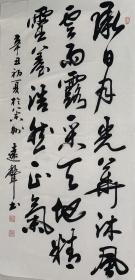 承日月光華沐風
雲雨露采天地精
靈養浩然正氣
辛丑初夏於 遠聲書